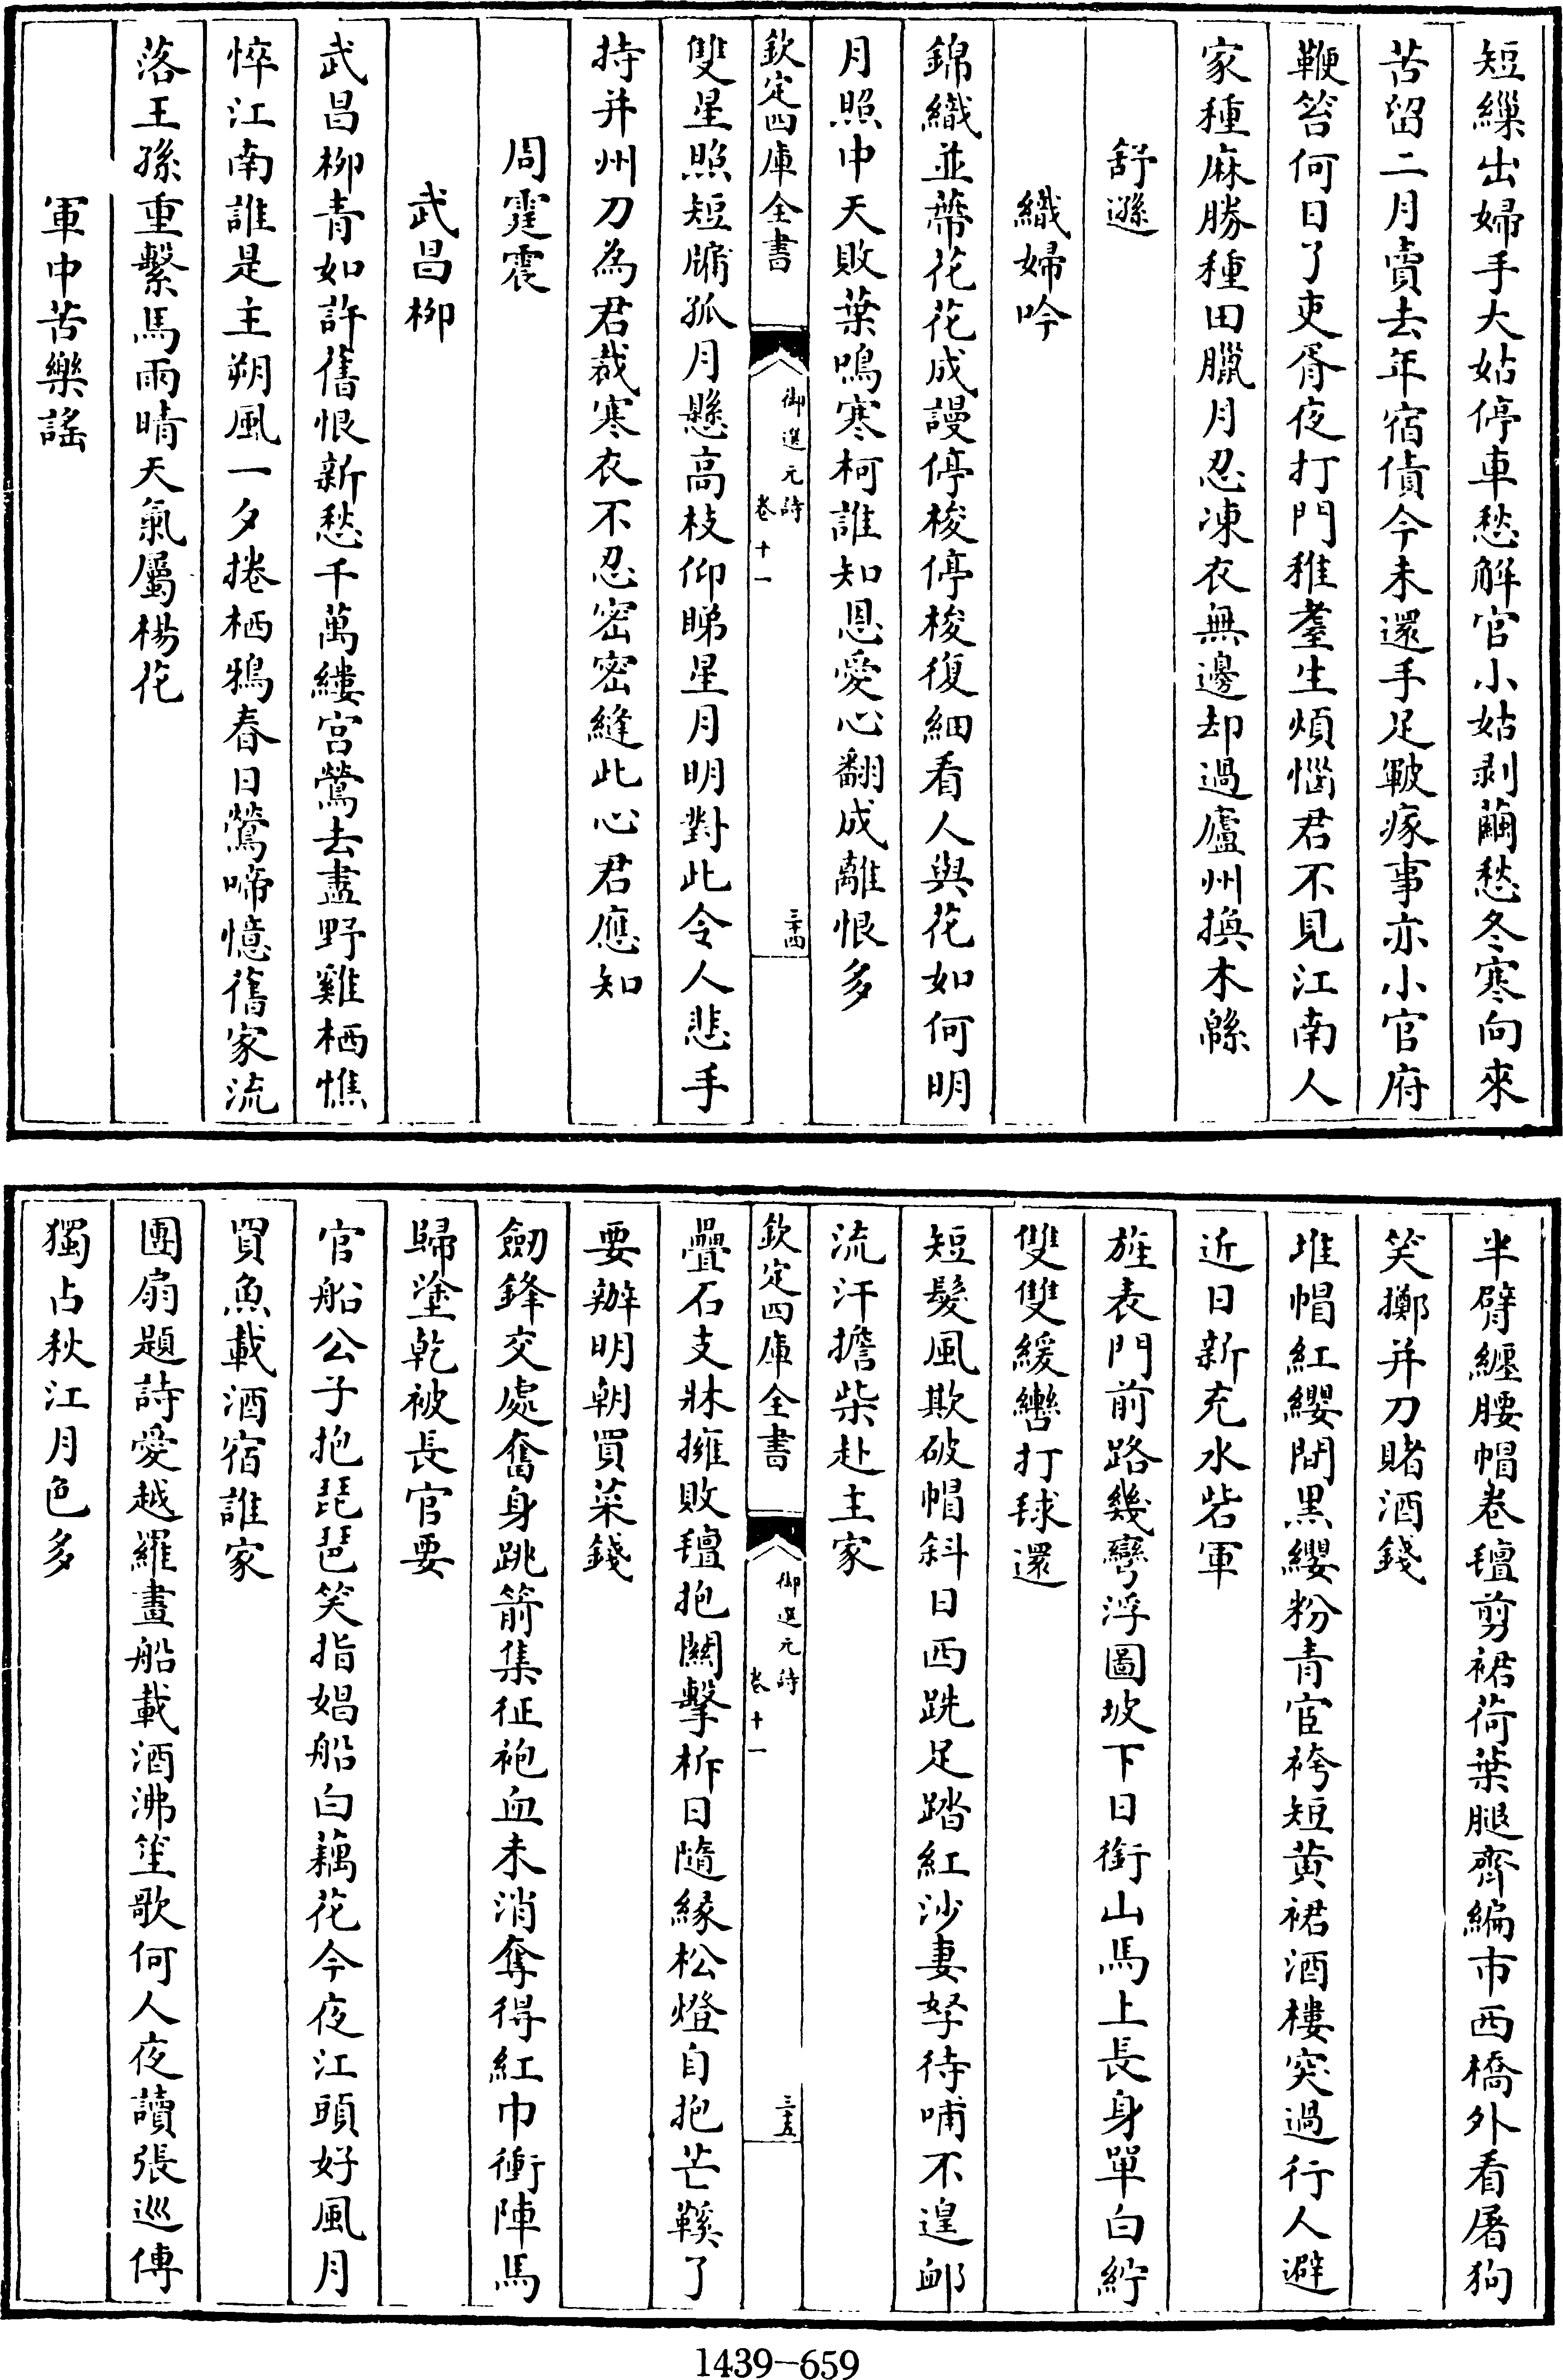 短繅出婦手大姑停車愁解官小姑剥繭愁冬寒向來
苦留二月賣去年宿債今未還手足皸瘃事亦小官府
鞭笞何日了吏胥夜打門稚耋生煩惱君不見江南人
家種麻勝種田臘月忍凍衣無邊却過廬州換木緜
舒遜
織婦吟
錦織並蔕花花成謾停梭停梭復細看人與花如何明
月照中天敗葉鳴寒柯誰知恩愛心翻成離恨多
欽定四庫全書
御選元詩
卷十一
三十四
雙星照短牖孤月懸高枝仰睇星月明對此令人悲手
持并州刀為君裁寒衣不忍密密縫此心君應知
周霆震
武昌柳
武昌柳青如許舊恨新愁千萬縷宫鶯去盡野雞栖憔
悴江南誰是主朔風一夕捲栖鴉春日鶯啼憶舊家流
落王孫重繫馬雨晴天氣屬楊花
軍中苦樂謡
半臂纏腰帽卷氊剪裙荷葉腿齊編市西橋外看屠狗
笑擲并刀賭酒錢
堆帽紅纓間黒纓粉青宦袴短黄裙酒樓突過行人避
近日新充水砦軍
旌表門前路幾彎浮圖坡下日銜山馬上長身單白紵
雙雙緩轡打毬還
短髮風欺破帽斜日西跣足踏紅沙妻孥待哺不遑䘏
流汗擔柴赴主家
欽定四庫全書
御選元詩
卷十一
三十五
疊石支牀擁敗氊抱關擊柝日隨縁松燈自抱芒鞵了
要辦明朝買菜錢
劒鋒交處奮身跳箭集征袍血未消奪得紅巾衝陣馬
歸塗乾被長官要
官船公子抱琵琶笑指娼船白藕花今夜江頭好風月
買魚載酒宿誰家
團扇題詩愛越羅畫船載酒沸笙歌何人夜讀張巡傳
獨占秋江月色多
1439-659